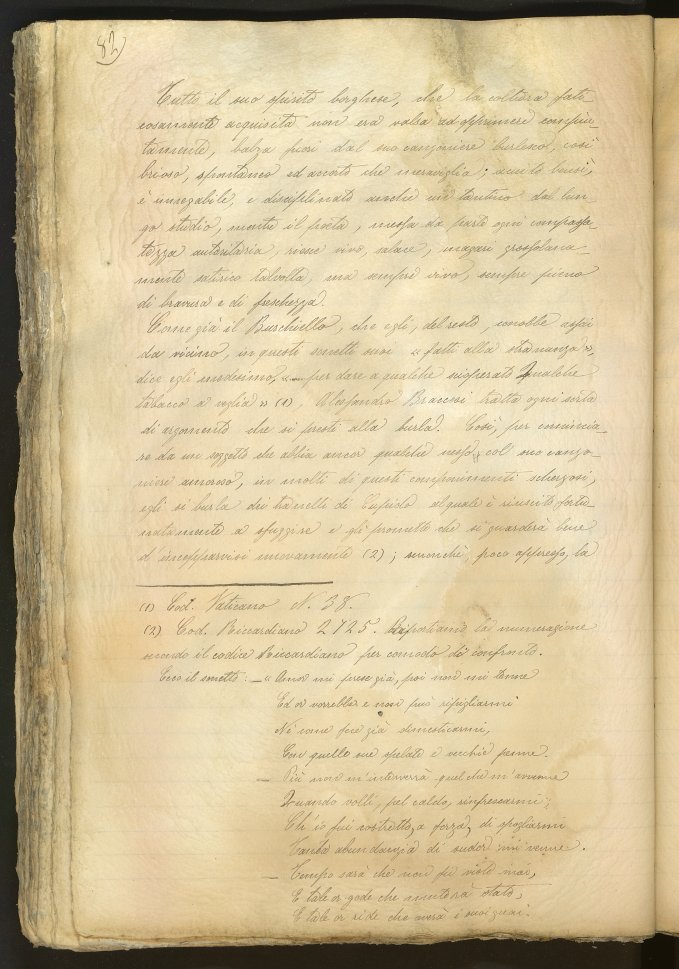 82)
Tutto il suo spirito borghese, che la coltura fati-
cosamente acquisita non era valsa ad opprimere compiu-
tamente, balza fuori dal suo canzoniere burlesco, così
brioso, spontaneo ed accorto che meraviglia; acuito bensì,
è innegabile, e disciplinato anche un tantino dal lun-
go studio, mentre il poeta, messa da parte ogni compassa-
tezza autoritaria, riesce vivo, salace, magari grossolana-
mente satirico talvolta, ma sempre vivo, sempre pieno
di bravura e di freschezza.
Come già il Burchiello, che egli, del resto, conobbe assai
da vicino, in questi sonetti suoi « fatti alla stramazza »,
dice egli medesimo, « per dare a qualche scioperato qualche
tibacco a veglia » (1), Alessandro Braccesi tratta ogni sorta
di argomento che si presti alla burla. Così, per comincia-
re da un soggetto che abbia ancor qualche nesso col suo canzo-
niere amoroso, in molti di questi componimenti scherzosi,
egli si burla dei tranelli di Cupido al quale è riuscito fortu-
natamente a sfuggire e gli promette che si guarderà bene
d'incapparvisi nuovamente (2); sennonchè, poco appresso, la
(1) Cod. Vaticano N. 38.
(2) Cod. Riccardiano 2725. Riportiamo la numerazione
secondo il codice Riccardiano per comodo di confronto.
Ecco il sonetto: — « Amor mi prese già, poi non mi tenne
Ed or vorrebbe e non può ripigliarmi
Nè come fece già domesticarmi,
Con quelle sue spelate e vecchie penne.
— Più non m'interverrà quel che m'avvenne
Quando volli, pel caldo, rinfrescarmi;
Ch'io fui costretto, a forza, di spogliarmi
Tanta abundanzia di sudor mi venne.
— Tempo sarà che non fu visto mai,
E tale or gode che muterà stato,
E tale or ride che averà i suoi guai.